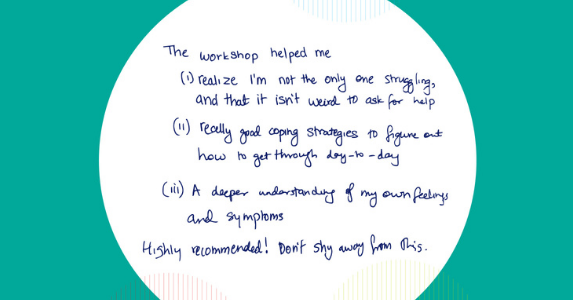 The workshop helped me
(i) realize I'm not the only one struggling,
and that it isn't weird to ask for help
(ii) really good coping strategies to figure out
how to get through day-to-day
(iii) A deeper understanding of my own feelings
and symptoms
Highly recommended! Don't shy away from this.